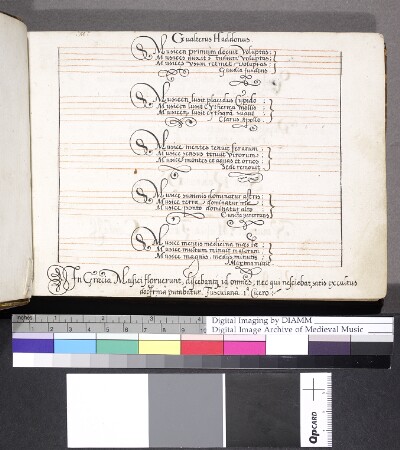 Gualterus Haddonus
Musicen primum docuit Voluptas,
Musices auxit bonum Voluptas:
Musices usum retinet Voluptas
Gaudia fundens
Musicen lusit placidus Cupido
Musicen lusit Cytherea mollis
Musicen lusit cythara suave
Clarus Apollo
Musice mentes tenuit ferarum
Musice sensus tenuit virorum
Musice montes et aquas et ornos
Sede removit
Musice summis dominatur astris
Musice terra dominatur
Musice ponto dominatur alto
Cuncta
Musice mentis medicina
Musice multum minuit
Musice magnis medijs minutis
Maxima
In Graecia Musici floruerunt, discebantque id omnes, nec qui nesciebat, satis excultus
doctrina putabatur. Tusculana 1ª Cicero:
inches 1 2 3 4
Digital Imaging by DIAMM
Digital Image Archive of Medieval Music
QPCARD